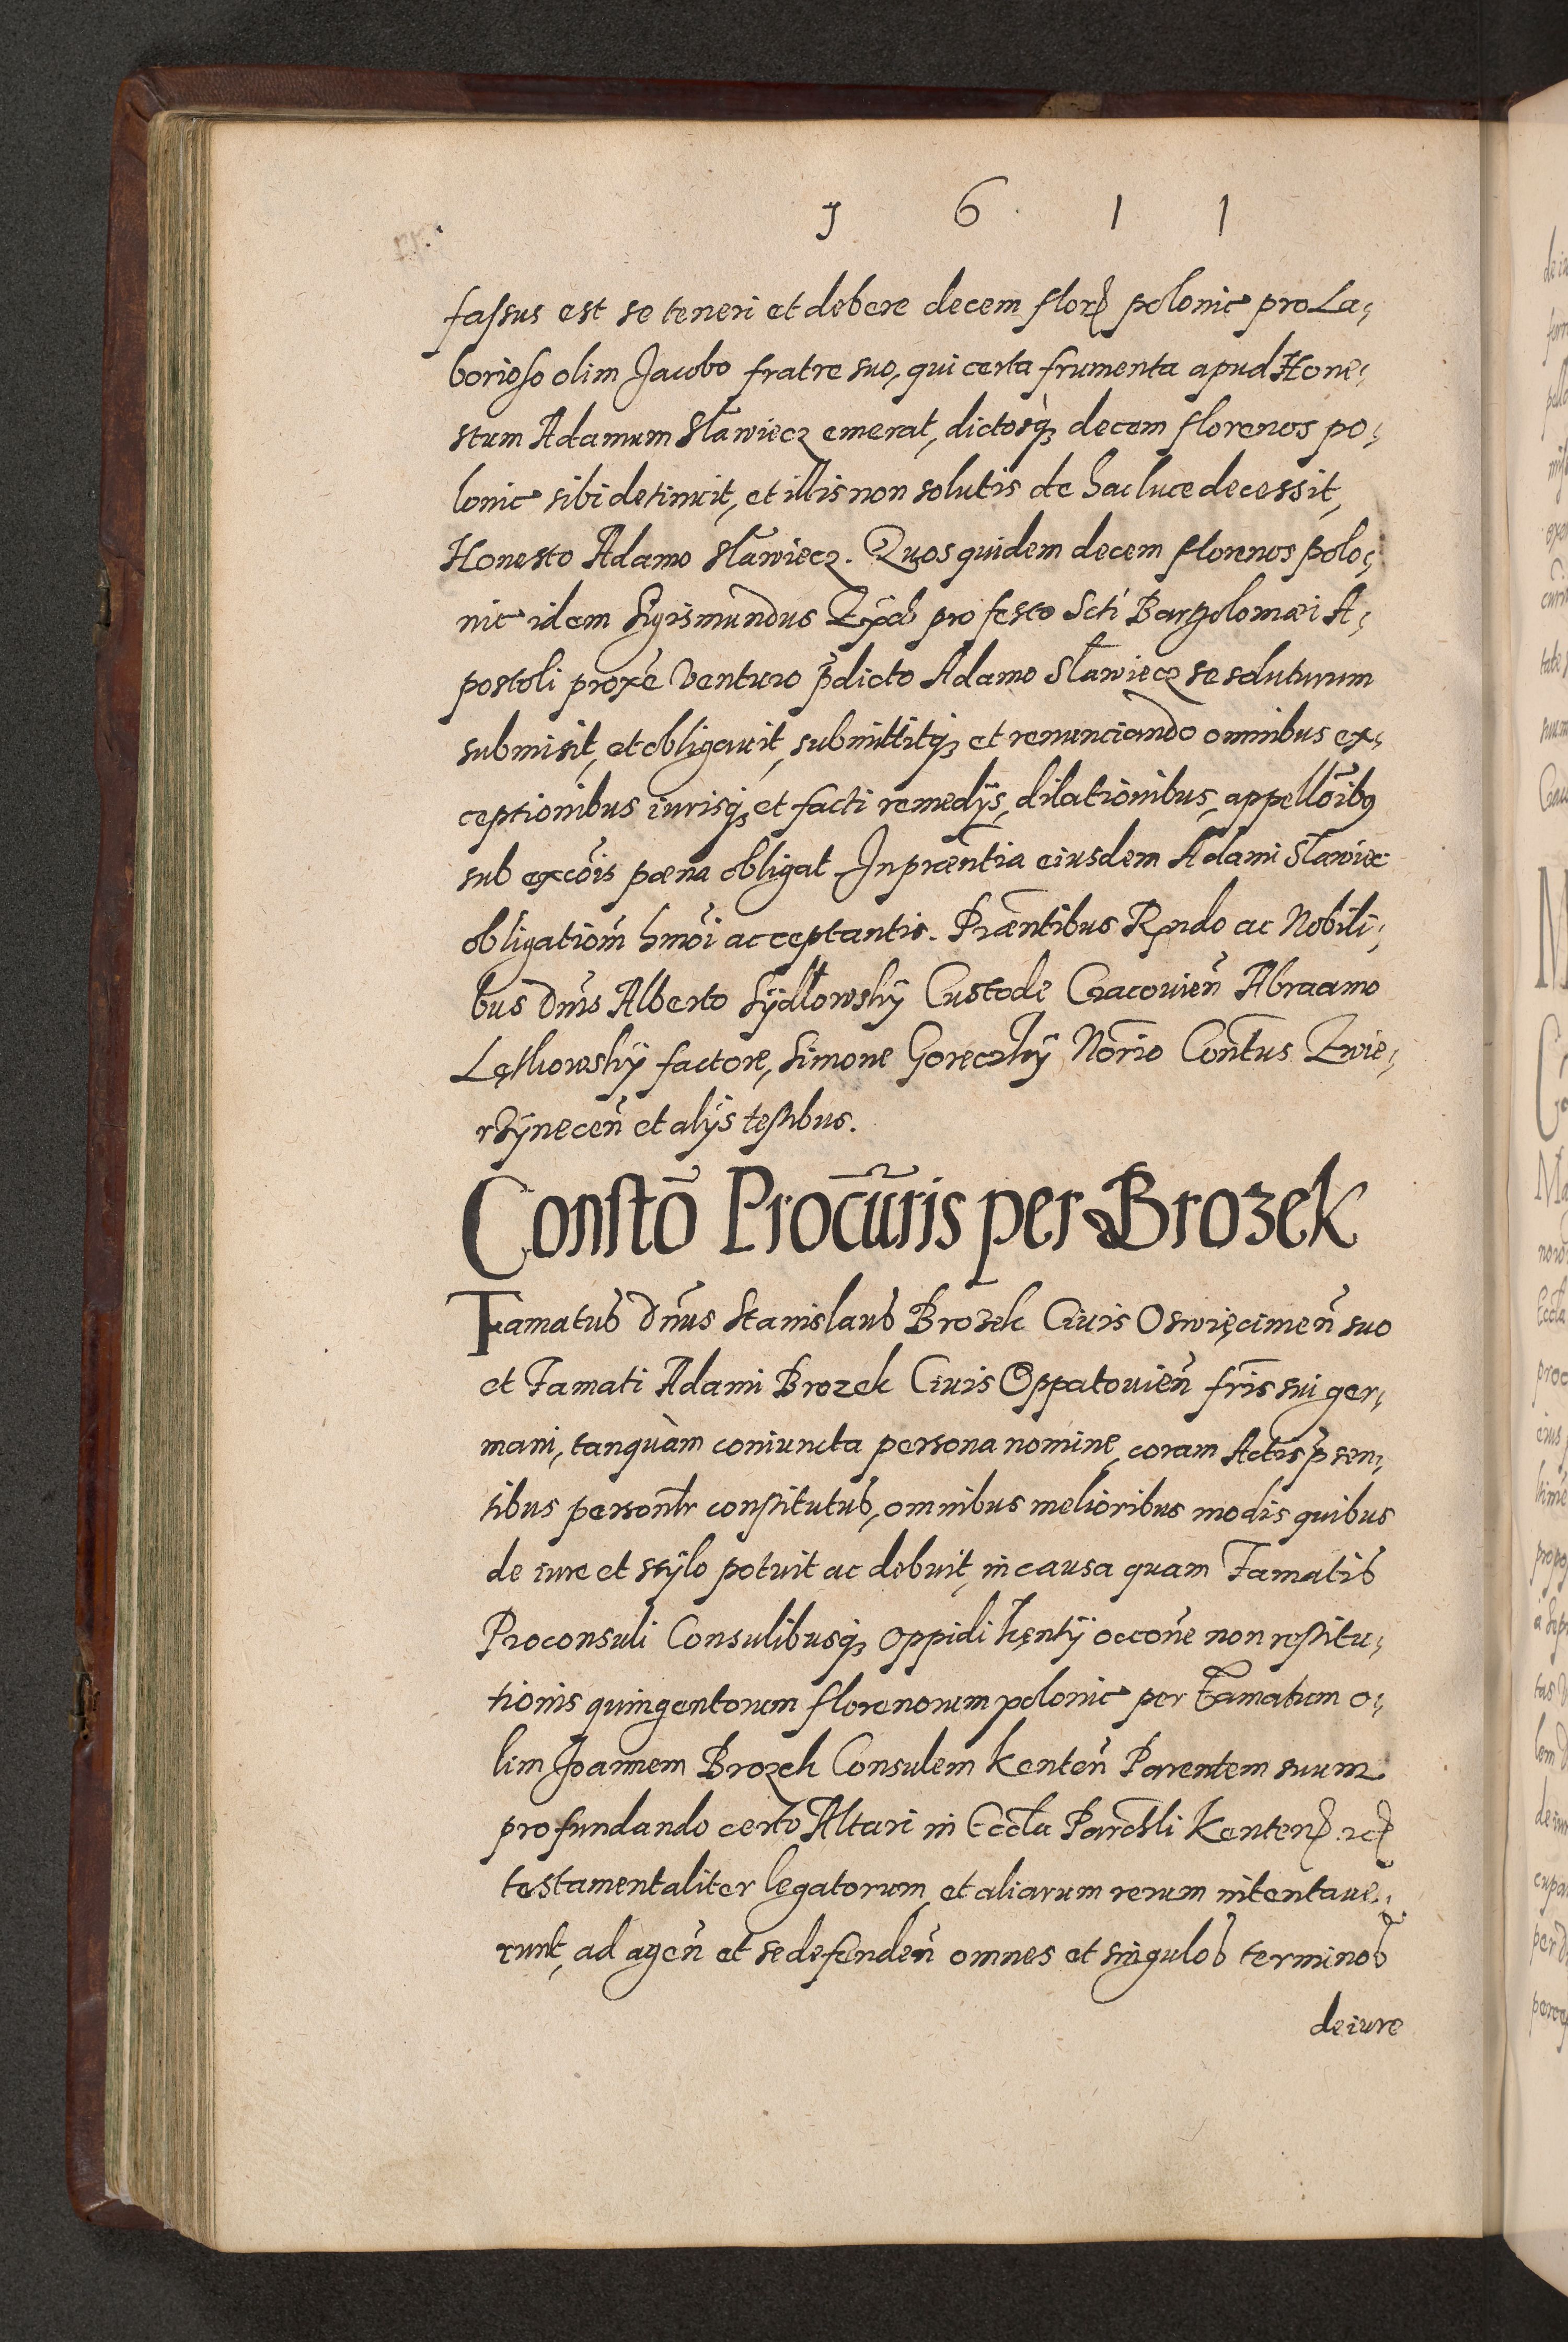 1 6 1 1
fassus est se teneri et debere decem flor polonic pro La,
borioso olim Jacobo fratre suo, qui certa frumenta apud Hone,
stum Adamum Sławiecz emerat, dictosq; decem florenos po,
lonic sibi detinuit, et illis non solutis de hac luce decessit,
Honesto Adamo Sławiecz. Quos quidem decem florenos polo,
nic idem Sigismundus pro festo Scti Bartholomæi A,
postoli proxe venturo p̃dicto Adamo Sławiecz se soluturum
submisit, et obligauit, submittitq; et renunciando omnibus ex,
ceptionibus iurisq; et facti remedijs, dilationibus, appellõibq
sub excõis pœna obligat. In præntia eiusdem Adami Sławiec
obligatiom̃ hmõi acceptantis. Præntibus Rndo ac Nobili,
bus dñis Alberto Sÿdłowskÿ Custode Cracouień Abraamo
Lętkowskÿ factore, Simone Goreczkÿ Norio Contus Zwie,
rzÿnecen̄ et alijs testibus.
Constõ Procuris per Brozek
Famatus dñus Stanislaus Brozek Ciuis Oswięcimeñ suo
et Famati Adami Brozek Ciuis Oppatouień fris sui ger,
mani, tanquàm coniuncta persona nomine, coram Actis p̃sen,
tibus personlr constitutus, omnibus melioribus modis quibus
de iure et stÿlo potuit ac debuit, in causa quam Famatis
Proconsuli Consulibusq; oppidi Kęntÿ occone non restitu,
tionis quingentorum florenorum polonic per Famatum o,
lim Joannem Brozek Consulem Kenteñ Parentem suum
pro fundando certo Altari in Eccła Parochli Kenten
testamentaliter legatorum, et aliarum rerum intentaue,
runt, ad ageñ et se defendeñ omnes et singulos terminos
de iure